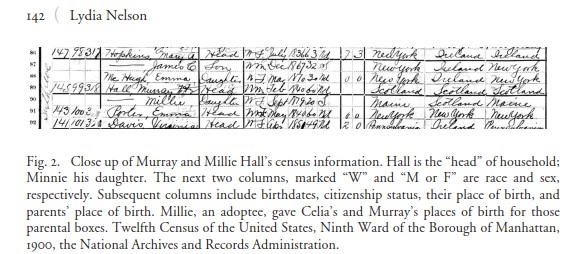 142 ( Lydia Nelson
86 147 Hopkins, Mary Head W F July 1836 63 7 3 New York Ireland Ireland
87 James C Son W M Dec 1867 32 S New York Ireland New York
88 Mc Hugh, Emma Daughter W F May 1870 30 0 0 New York Ireland New York
89 Hall, Murray H Head W M Feb Scotland Scotland Scotland
90 Millie Daughter W F Sept 1879 20 S Maine Scotland Maine
91 Emma Head May 0 0 New York New York New York
92 Davis, Virginia Head W F 2 0 Ireland
Fig. 2. Close up of Murray and Millie Hall's census information. Hall is the "head" of household;
Minnie his daughter. The next two columns, marked "W" and "M or F" are race and sex,
respectively. Subsequent columns include birthdates, citizenship status, their place of birth, and
parents' place of birth. Millie, an adoptee, gave Celia's and Murray's places of birth for those
parental boxes. Twelfth Census of the United States, Ninth Ward of the Borough of Manhattan,
1900, the National Archives and Records Administration.